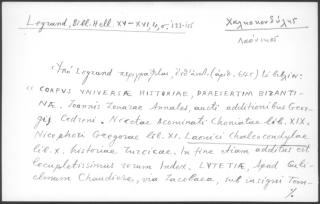 Legrand, Bibl. Hell. XV-XVI, 4, σ. 133-135
Χαλκοκονδύλης
Λαόνικος
Ὑπὸ Legrand περιγράφεται, (ἀρ. 645) τὸ βιβλίον:
"CORPVS VNIVERSAE HISTORIAE, PRAESERTIM BIZANTI-
NAE. Joannis Zonarae Annales, aucti additionibus Geor-
gij Cedreni. Nicetae Acominati Choniatae lib. XIX.
Nicephori Gregorae lib. XI. Laonici Chalcocondylae
lib. X. historiae Turcicae. In fine etiam additus est
locupletissimus rerum Index. LVTETIAE, Apud Guli-
elmum Chaudiere, via Jacobaea, sub insigni Tem-
%